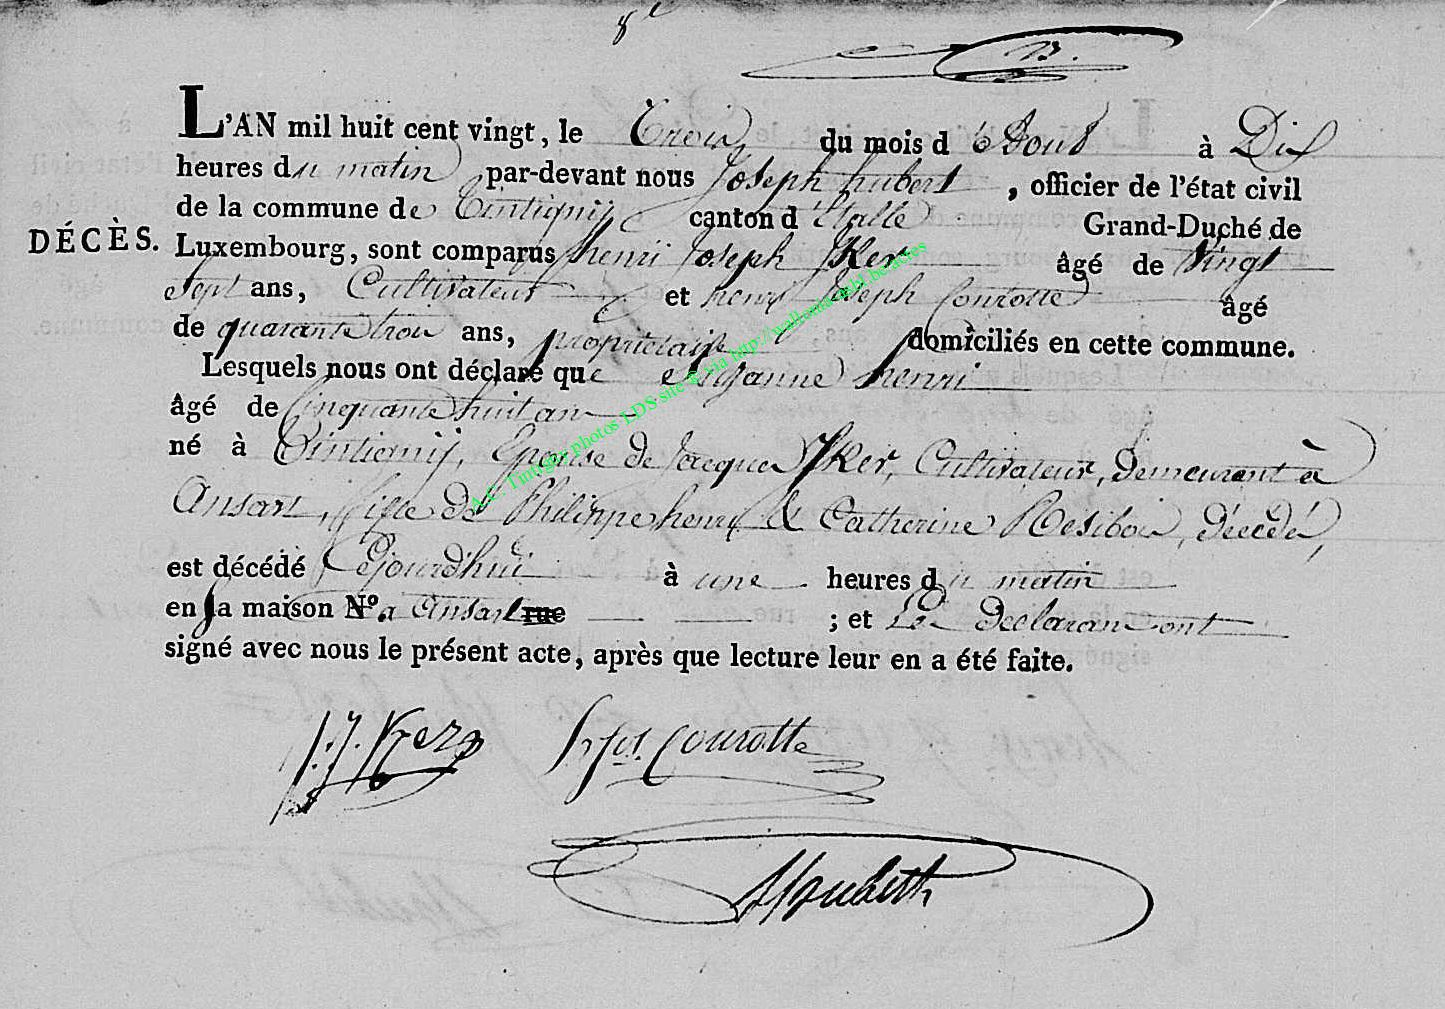 8e
B.
L'AN mil huit cent vingt, le Trois du mois d'Aout à Dix
heures du matin par-devant nous Joseph hubert, officier de l'état civil
de la commune de Tintigny canton d'Etalle Grand-Duché de
DÉCÈS. Luxembourg, sont comparus henri Joseph Ker âgé de Vingt
Sept ans, Cultivateur et henri Joseph Courotte âgé
de quarante trois ans, proprietaire domiciliés en cette commune.
Lesquels nous ont déclaré que Susanne henri
âgé de Cinquante huit an
né à Tintigny, Epouse de Jacque Ker, Cultivateur, demeurant à
Ansart, fille de Philippe henri & Catherine Resibois, décédé,
est décédé Cejourd'hui à une heures du matin
en sa maison N.o a Ansart rue ; et Les Declarans ont
signé avec nous le présent acte, après que lecture leur en a été faite.
h.j. Ker h jos. Courotte
A.C. Tintigny photos LDS site & via http://wallonia.asbl.be/actes